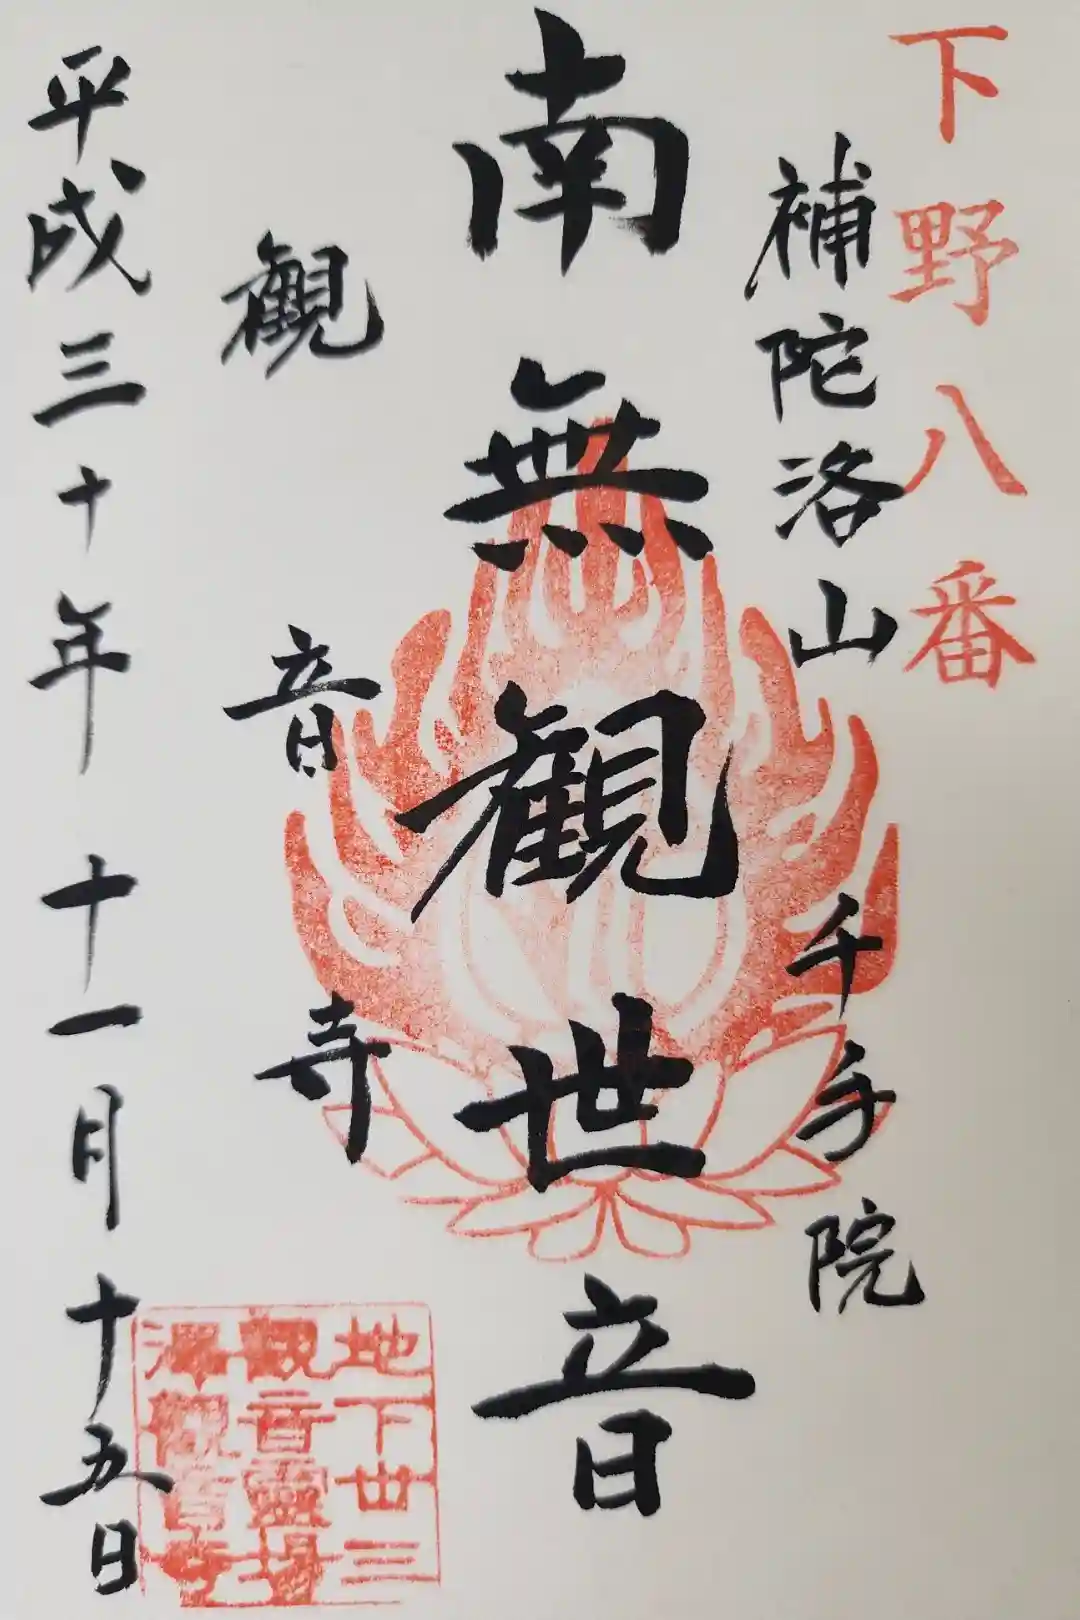 下野八番
補陀洛山
千手院
南無観世音
観音寺
平成三十年十一月十五日
地下丗三
観音霊場